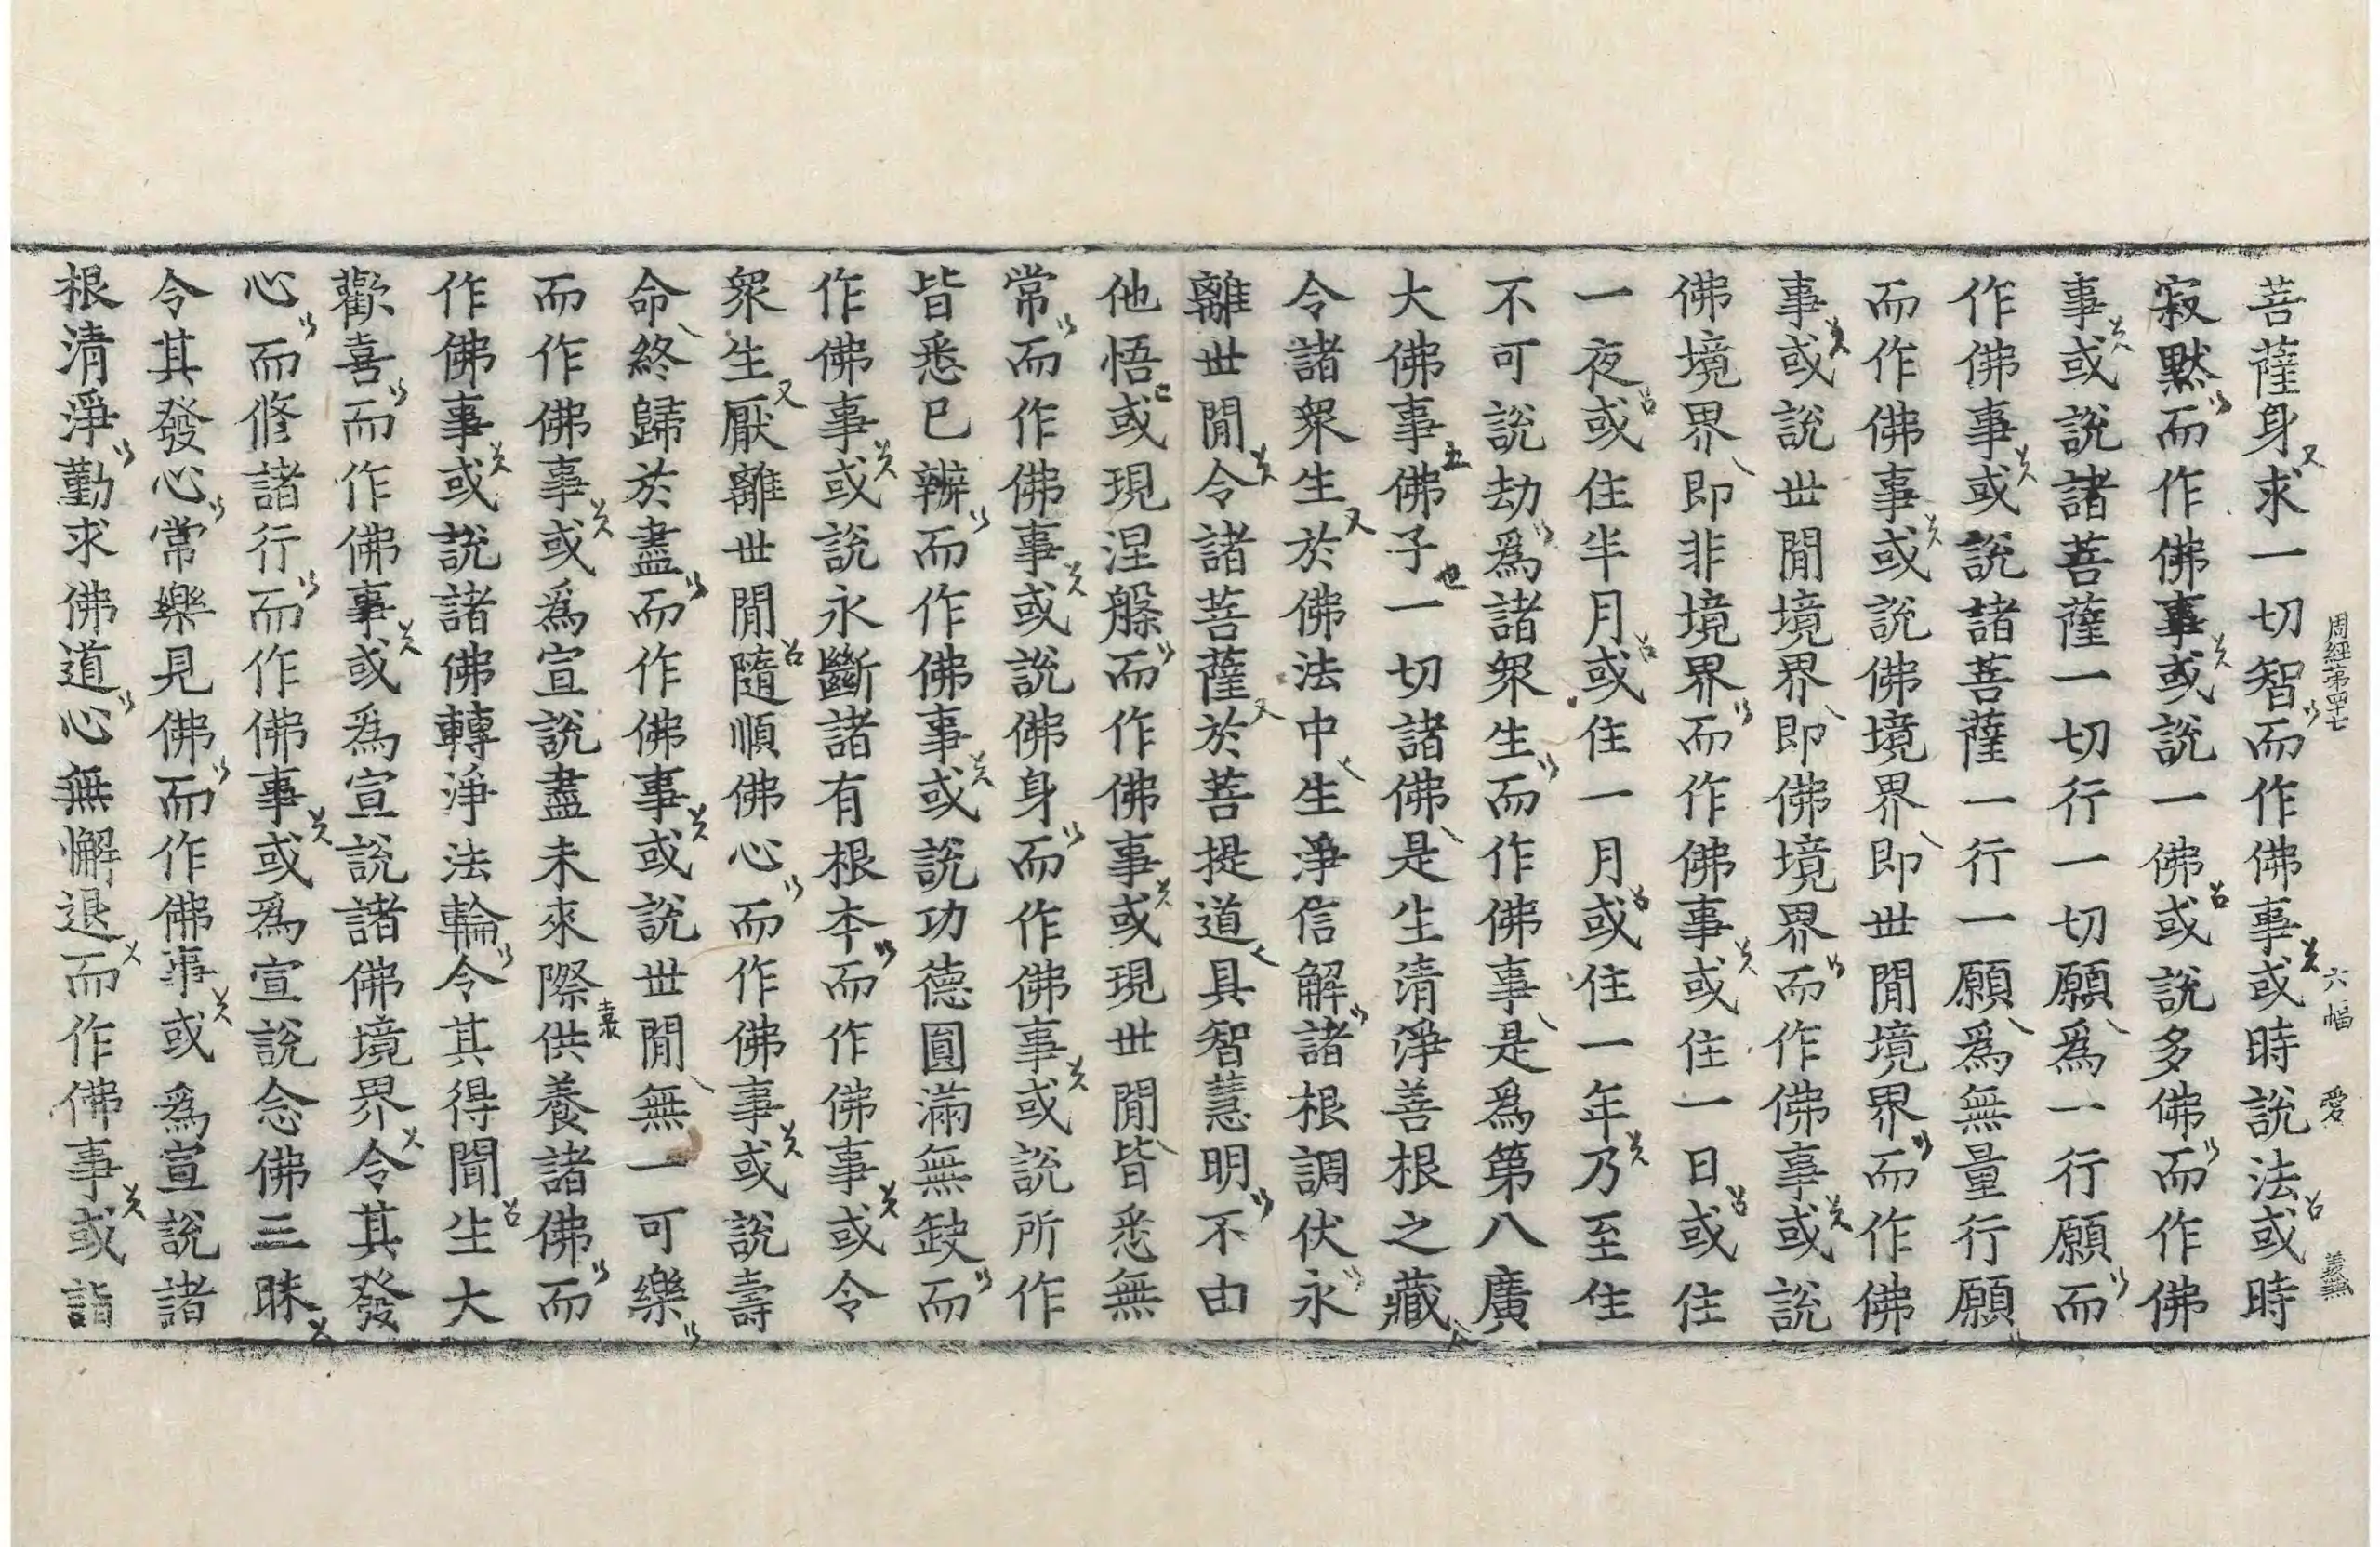 周經第四十七 六幅 愛 義無
菩薩身求一切智而作佛事或時說法或時
寂默而作佛事或說一佛或說多佛而作佛
事或說諸菩薩一切行一切願爲一行願而
作佛事或說諸菩薩一行一願爲無量行願
而作佛事或說佛境界即世閒境界而作佛
事或說世閒境界即佛境界而作佛事或說
佛境界即非境界而作佛事或住一日或住
一夜或住半月或住一月或住一年乃至住
不可說劫爲諸衆生而作佛事是爲第八廣
大佛事佛子一切諸佛是生清淨善根之藏
令諸衆生於佛法中生淨信解諸根調伏永
離世閒令諸菩薩於菩提道具智慧明不由
他悟或現涅槃而作佛事或現世閒皆悉無
常而作佛事或說佛身而作佛事或說所作
皆悉已辦而作佛事或說功德圓滿無缺而
作佛事或說永斷諸有根本而作佛事或令
衆生厭離世閒隨順佛心而作佛事或說壽
命終歸於盡而作佛事或說世閒無一可樂
而作佛事或爲宣說盡未來際供養諸佛而
作佛事或說諸佛轉淨法輪令其得聞生大
歡喜而作佛事或爲宣說諸佛境界令其發
心而修諸行而作佛事或爲宣說念佛三昧
令其發心常樂見佛而作佛事或爲宣說諸
根清淨勤求佛道心無懈退而作佛事或詣